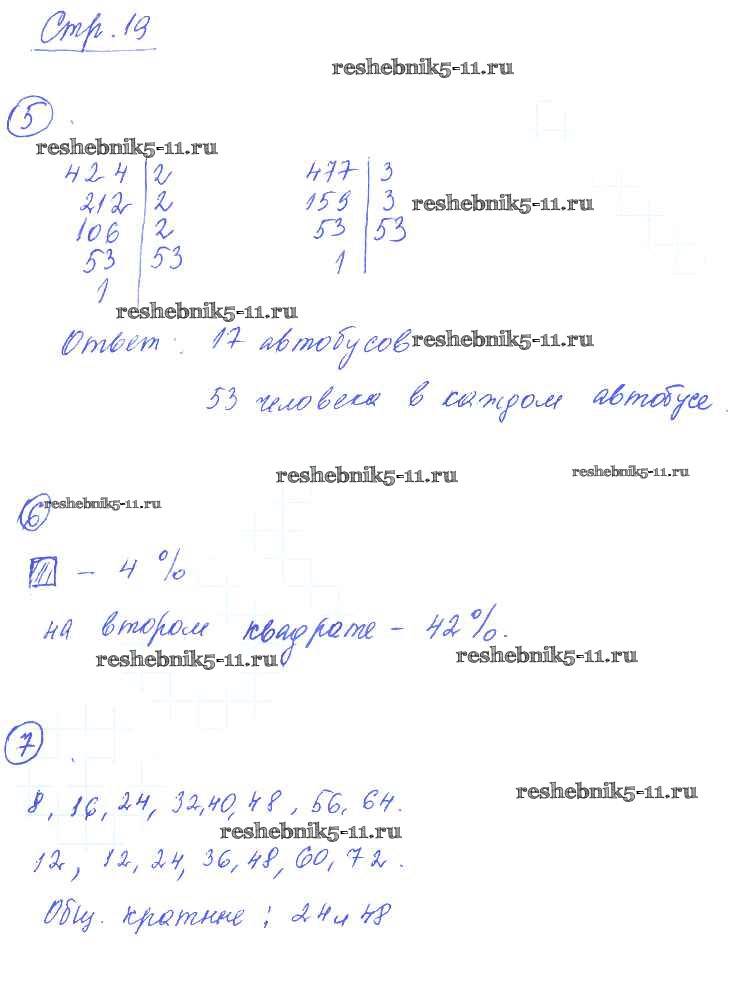 Стр. 19
reshebnik5-11.ru
5
reshebnik5-11.ru
424 | 2 477 | 3
212 | 2 159 | 3 reshebnik5-11.ru
106 | 2 53 | 53
53 | 53 1
1
reshebnik5-11.ru
Ответ: 17 автобусов reshebnik5-11.ru
53 человека в каждом автобусе.
reshebnik5-11.ru reshebnik5-11.ru
6 reshebnik5-11.ru
– 4 %
на втором квадрате – 42%.
reshebnik5-11.ru reshebnik5-11.ru
7
reshebnik5-11.ru
8, 16, 24, 32, 40, 48, 56, 64.
reshebnik5-11.ru
12, 12, 24, 36, 48, 60, 72.
Общ. кратные: 24 и 48